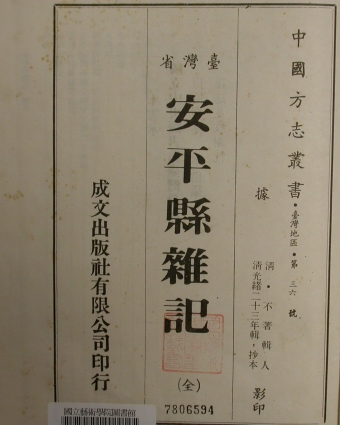 中國方志叢書·臺灣地區·第三六號
據
清·不著輯人
清光緒二十三年輯,抄本
影印
臺灣省
安平縣雜記
(全)
7806594
成文出版社有限公司印行
國立藝術學院圖書館